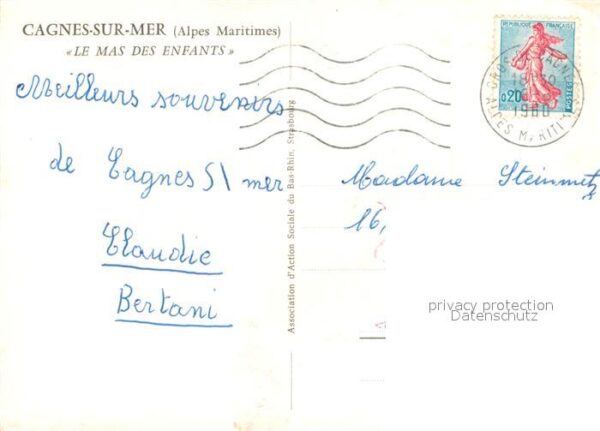 CAGNES-SUR-MER (Alpes Maritimes)
« LE MAS DES ENFANTS »
Meilleurs souvenirs
de Cagnes S/ mer
Claudie
Bertani
Association d'Action Sociale du Bas-Rhin, Strasbourg
REPUBLIQUE FRANÇAISE
0,20
POSTES
1960
ALPES MARITI
Madame Steinmetz
16,
privacy protection
Datenschutz